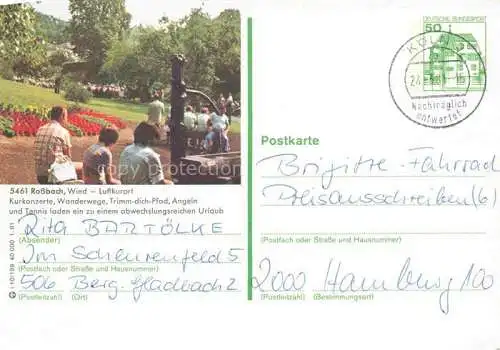 5461 Roßbach, Wied – Luftkurort
Kurkonzerte, Wanderwege, Trimm-dich-Pfad, Angeln
und Tennis laden ein zu einem abwechslungsreichen Urlaub
Rita BARTÖLKE
(Absender)
Im Scheurenfeld 5
(Postfach oder Straße und Hausnummer)
506 Berg. Gladbach 2
(Postleitzahl) (Ort)
DEUTSCHE BUNDESPOST
50
KÖLN
Nachträglich
entwertet
Postkarte
Brigitte-Fahrrad
Preisausschreiben (6)
(Postfach oder Straße und Hausnummer)
2000 Hamburg 100
(Postleitzahl) (Bestimmungsort)
copyright